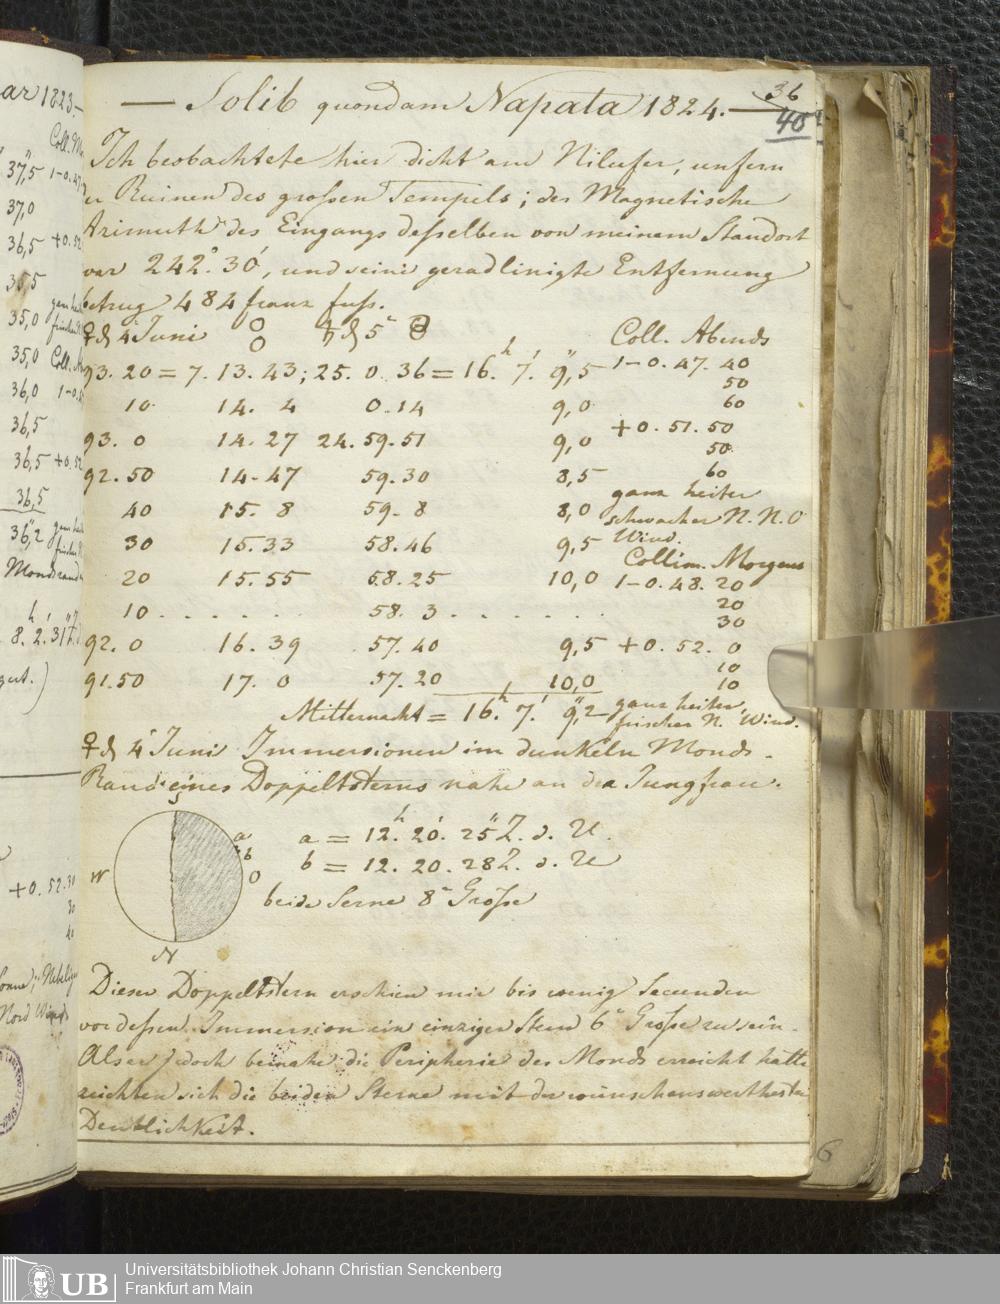 — Solib quondam Napata 1824. —
36
40
Ich beobachtete hier dicht am Nilufer, unfern
er Ruinen des großen Tempels; der Magnetische
Azimuth des Eingangs desselben von meinem Standort
war 242°. 30', und seine geradlinigte Entfernung
betrug 484 franz fuss.
♀ d 4 Juni ♄ d 5 Coll. Abends
93. 20 = 7. 13. 43; 25. 0. 36 = 16.h 7.' 9,"5 1–0. 47. 40
50
10 14. 4 0. 14 9,0 60
93. 0 14. 27 24. 59. 51 9,0 +0. 51. 50
50
92. 50 14. 47 59. 30 8,5 60
ganz heiter
40 15. 8 59. 8 8,0 schwacher N. N. O
Wind.
30 15. 33 58. 46 9,5
Collim. Morgens
20 15. 55 58. 25 10,0 1–0. 48. 20
20
10 . . . . . . . 58. 3 . . . . . . 30
92. 0 16. 39 57. 40 9,5 +0. 52. 0
10
91. 50 17. 0 57. 20 10,0 10
Mitternacht = 16.h 7.' 9,"2 ganz heiter,
frischer N. Wind.
♀ d 4 Juni Immersionen im dunkeln Monds-
Rand eines Doppeltsterns nahe an der Jungfrau.
S
a
b
W O
N
a = 12.h 20.' 25" Z. d. U.
b = 12. 20. 28 Z. d. U
beide Serne 8 Größe
Dieser Doppeltstern erschien mir bis wenig Secunden
vor dessen Immersion ein einziger Stern 6 Große zu sein.
Als er jedoch beinahe die Peripherie des Monds erreicht hatte
zeichten sich die beiden Sterne mit der wünschenswerthesten
Deutlichkeit.
6
ar 1823.
37,"5
37,0
36,5 +0. 52
35,5
35,0
35,0 Coll.
36,0
36,5
36,5 +0. 52
36,5
36,"2
8.h 2.' 31"
+0. 52. 30
30
Nord Wind
UB
Universitätsbibliothek Johann Christian Senckenberg
Frankfurt am Main